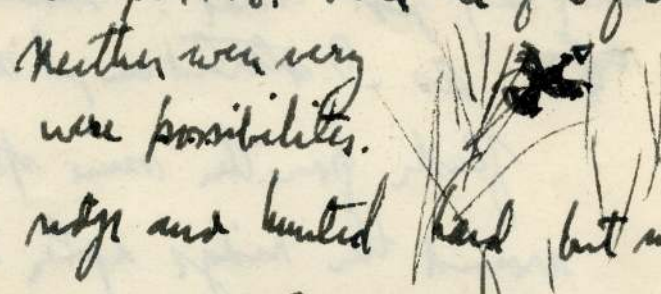 Neither were very
were possibilities.
ridge and hunted hard but